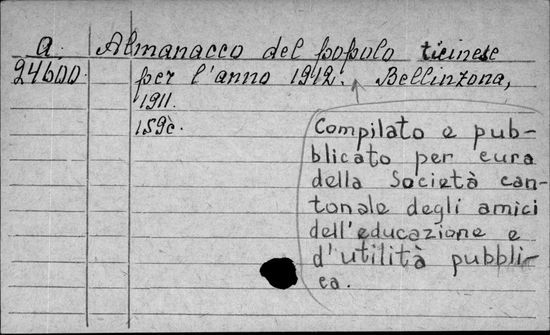 a. Almanacco del popolo ticinese
24600. per l'anno 1912. Bellinzona,
1911.
159c.
Compilato e pub-
blicato per cura
della Società can-
tonale degli amici
dell'educazione e
d'utilità pubbli-
ca.